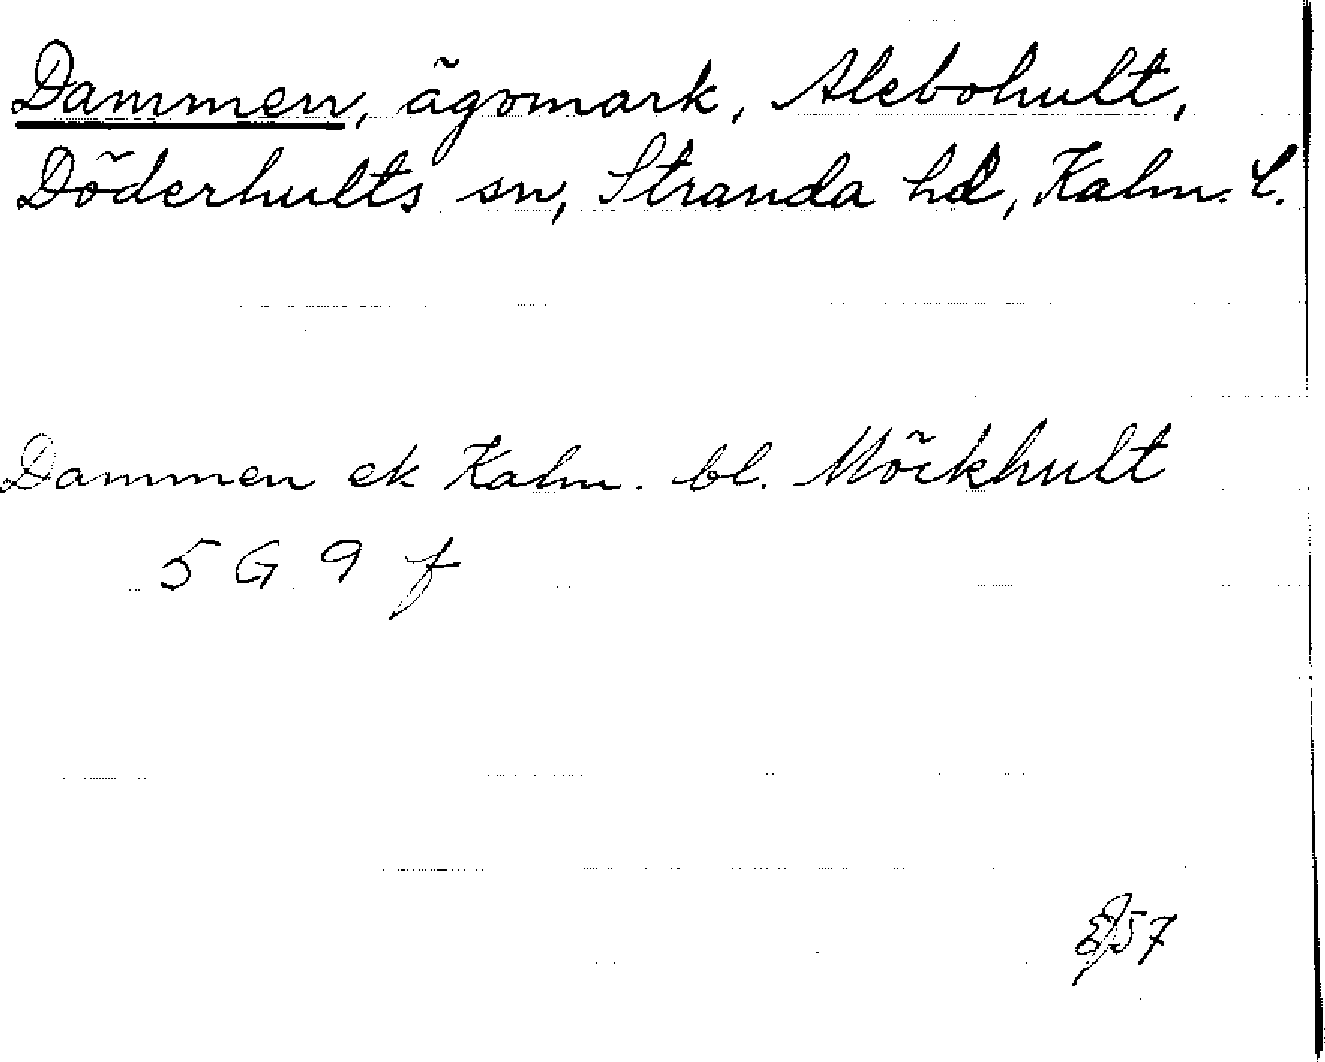 Dammen, ägomark, Alebohult,
Döderhults sn, Stranda hd, Kalm. l.
Dammen ek Kalm. bl. Möckhult
5 G 9 f
57